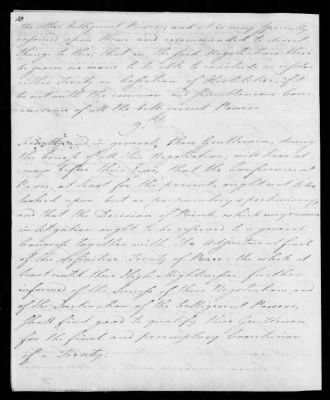 10.
the other belligerent Powers; and it is very specially
enjoined upon them and recommended to direct
things to this, that in the first Negotiations there
be given no room to be able to conclude a
Treaty or Cessation of Hostilities, if it
be not with the common and simultaneous Con-
currence of all the belligerent Powers.
9. th
and in general, these Gentlemen, during
the Course of all this Negotiation, will have al-
ways before their Eyes, that the Conferences at
Paris, at least for the present, ought not to be
looked upon but as preparatory & preliminary,
and that the Decision of Points, which may remain
in litigation ought to be referred to a general
Congress together with the Adjustment final
of the definitive Treaty of Peace: the whole at
least until their High Mightinesses further
informed of the Success of these Negotiations, and
of the Inclination of the belligerent Powers,
shall find good to qualify these Gentlemen
for the final and peremptory Conclusion
of a Treaty.